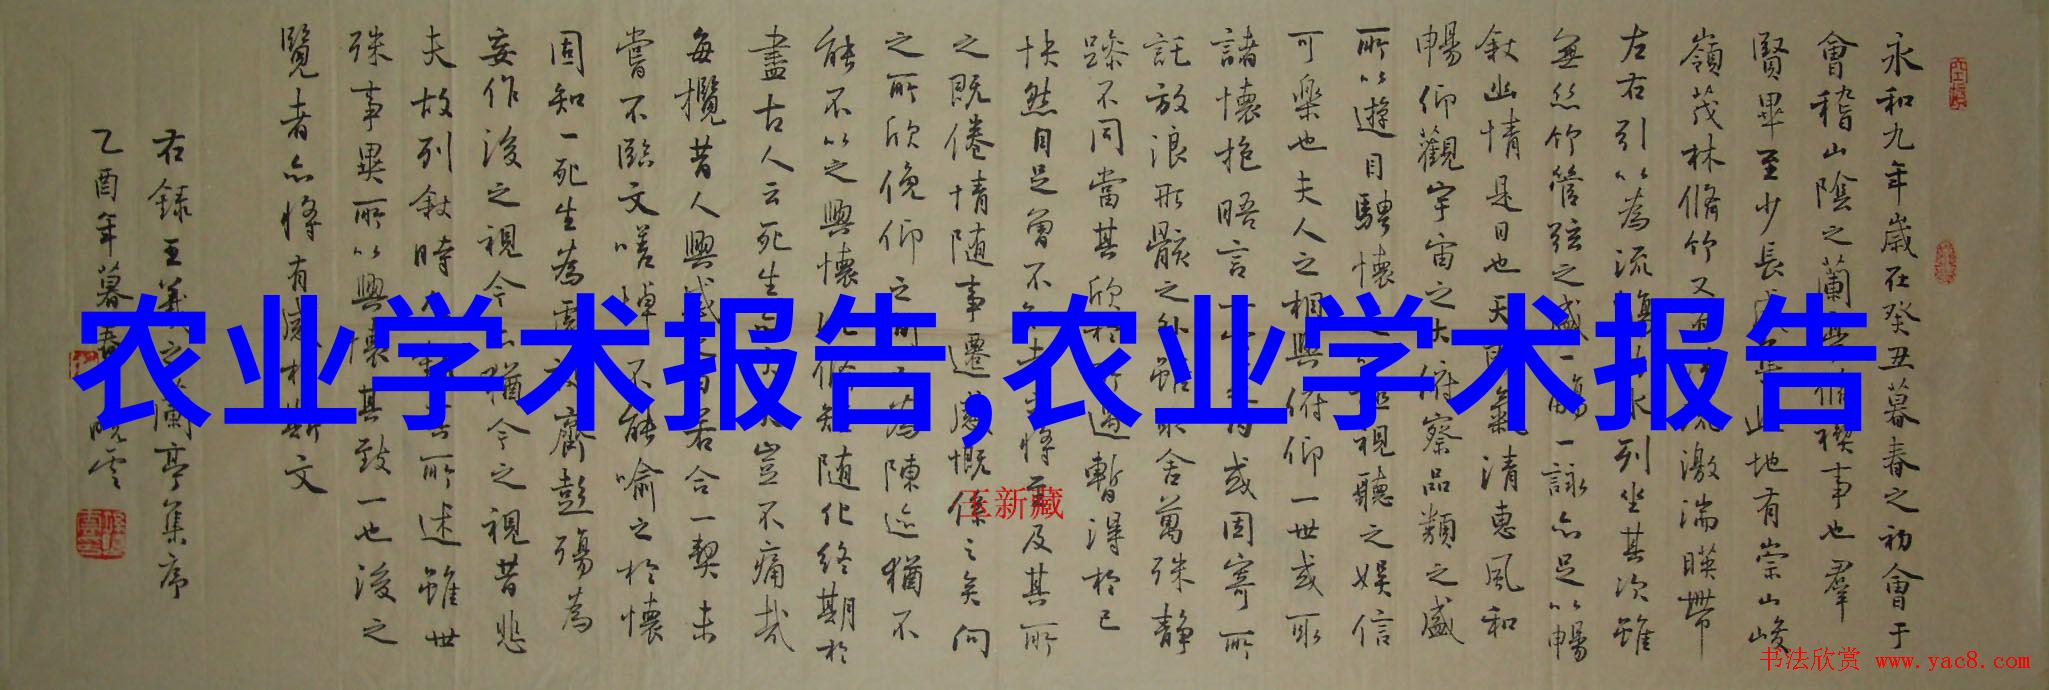 农业学术报告,农业学术报告
永和九年歲在癸丑暮春之初會于
會稽山陰之蘭亭脩禊事也羣
賢畢至少長咸集此地有崇山峻
嶺茂林脩竹又有流激湍暎帶
左右引以為流觴水列坐其次雖
無絲竹管弦之盛一觴一詠亦足以暢
敘幽情是日也天朗氣清惠風和
暢仰觀宇宙之大俯察品類之盛
所以遊目騁懷極視聽之娛信
可樂也夫人之相與俯仰一世或取
諸懷抱晤言一或因寄所
託放浪形骸之外雖舍萬殊靜
躁不同當其欣於遇暫得於己
快然自足曾不將至及其所
之既倦情随事遷感慨係之矣向
之所欣俛仰之間為陳迹猶不
能不以之興懷脩短随化終期於
盡古人云死生大矣豈不痛哉
每攬昔人興感之由若合一契未
嘗不臨文嗟悼不能喻之於懷
固知一死生為虛誕齊彭殤為
妄作後之視今亦猶今之視昔悲
夫故列敘時人其所述雖世
殊事異所以興懷其致一也後之
覽者亦將有感於斯文
右錄王羲之蘭亭集序
乙酉年暮春
王新藏
书法欣赏 www.yac8.com